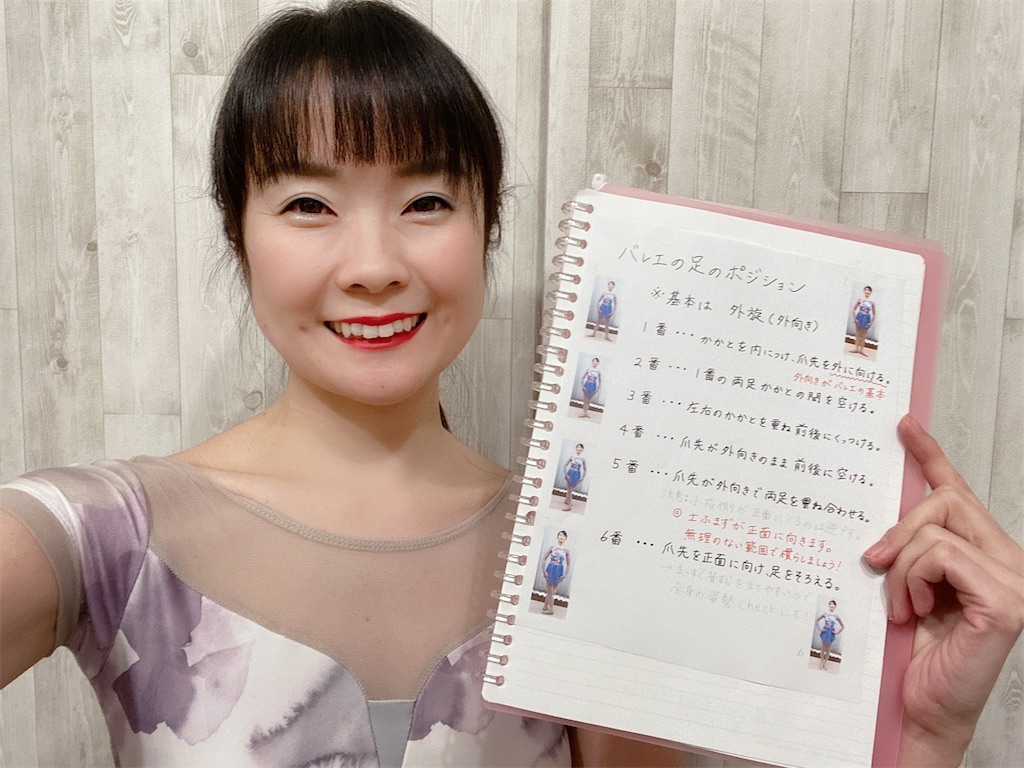 バレエの足のポジション
※基本は 外旋(外向き)
1番 ・・・ かかとを内につけ、爪先を外に向ける。
外向きがバレエの基本
2番 ・・・ 1番の両足かかとの間を空ける。
3番 ・・・ 左右のかかとを重ね前後にくっつける。
4番 ・・・ 爪先が外向きのまま前後に空ける。
5番 ・・・ 爪先が外向きで両足を重ね合わせる。
注意:小指側が正面にくるのは逆です。
◎ 土ふまずが正面に向きます。
無理のない範囲で慣らしましょう!
6番 ・・・ 爪先を正面に向け、足をそろえる。
全身の姿勢checkにて
6